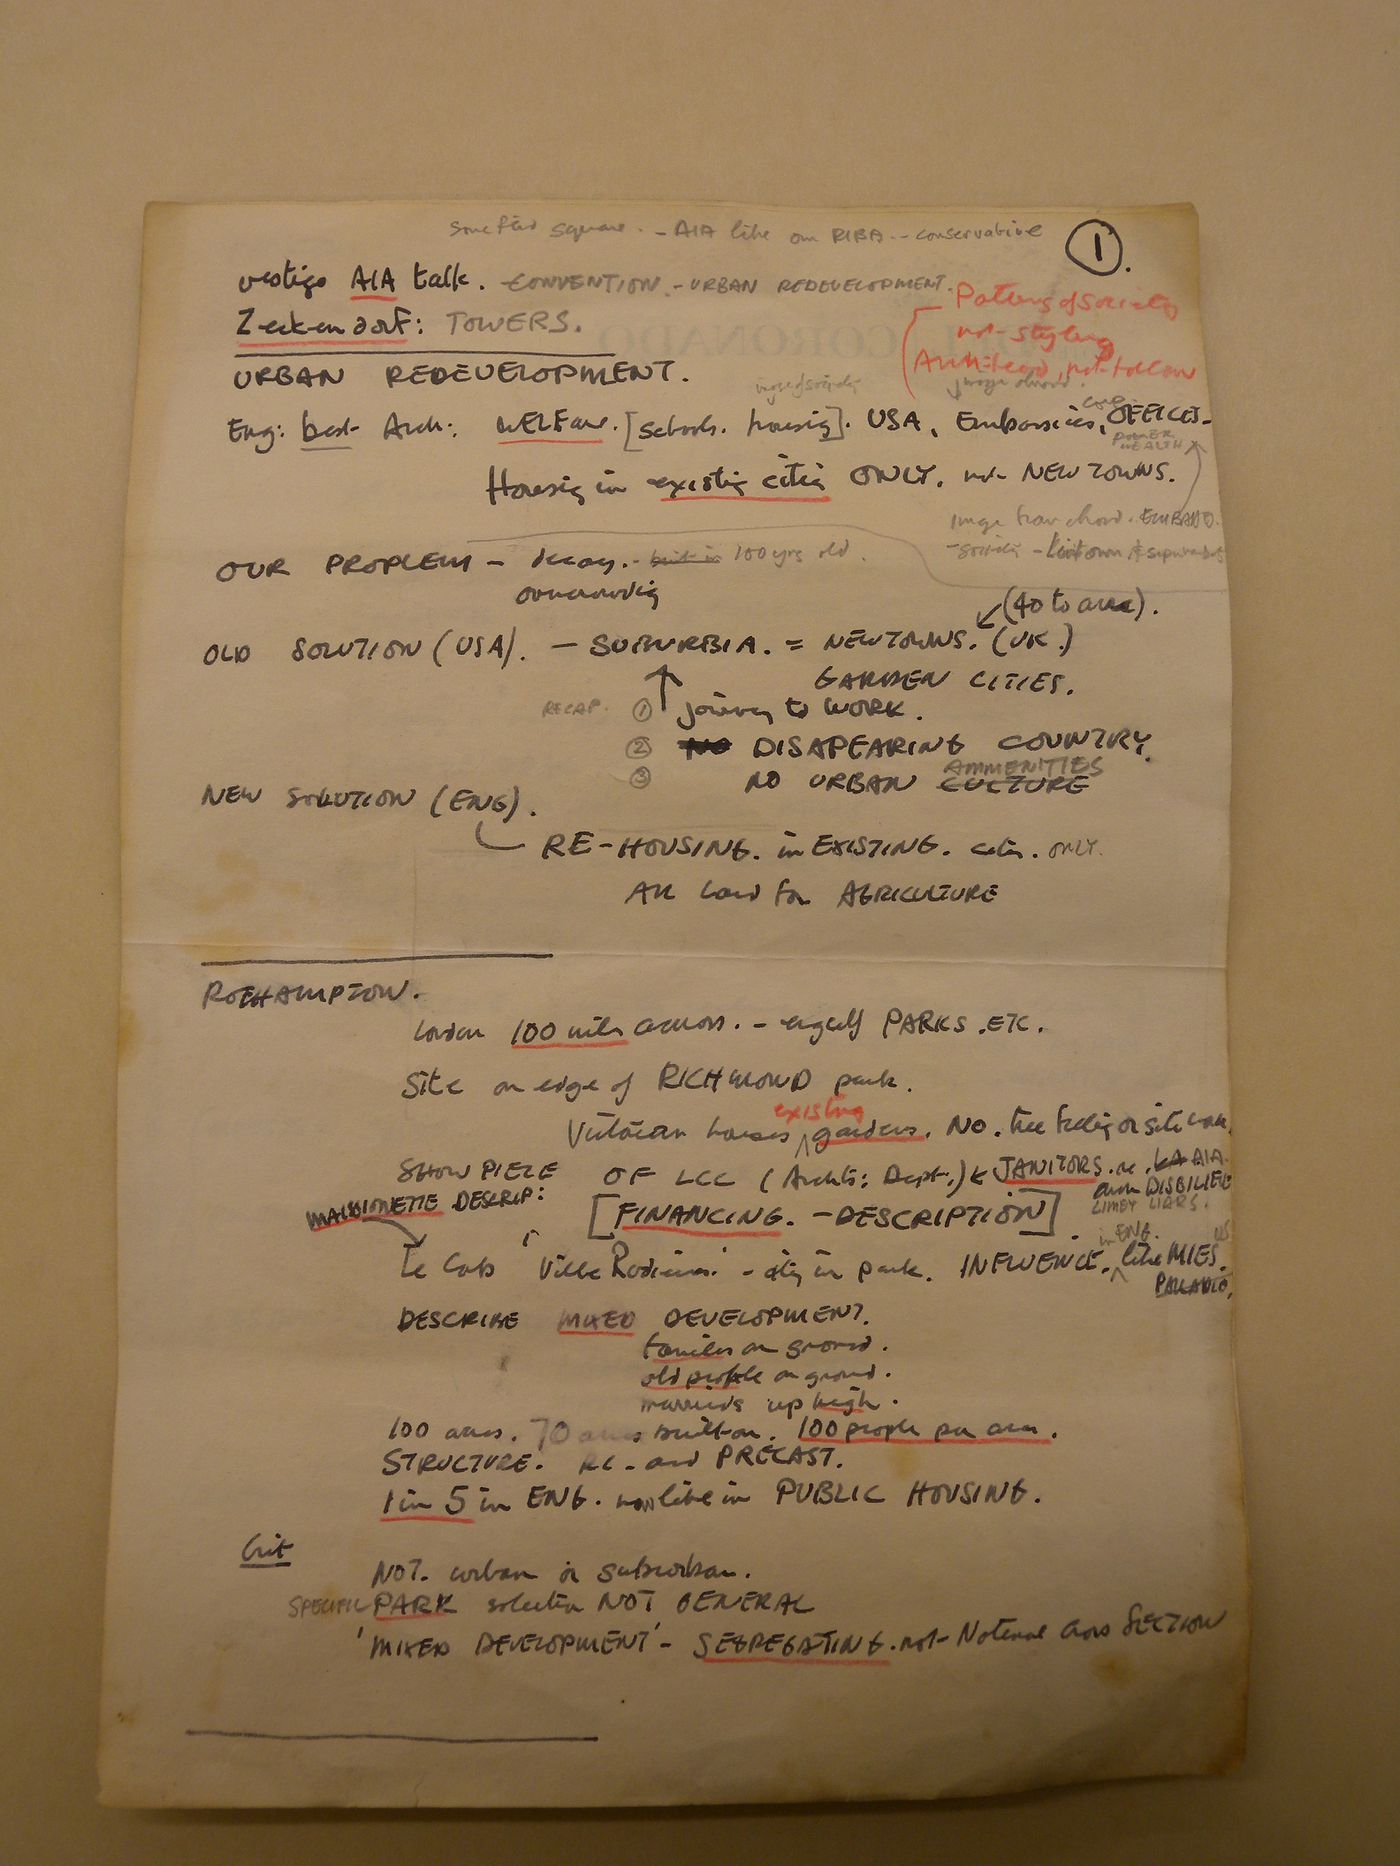 square. - AIA like our RIBA -- conservative
1.
vestige AIA talk. - CONVENTION. - URBAN REDEVELOPMENT.
Zeckendorf: TOWERS.
Pattern of society
not styling
Archts: lead, not follow
CORONADO
URBAN REDEVELOPMENT.
image of society
image abroad.
Eng: best Arch: WELFare. [Schools. housing]. USA, Embassies, OFFICES.
POWER
WEALTH
Housing in existing cities ONLY. not NEW TOWNS.
image from abroad. EMBASS.
- society -
OUR PROBLEM - decay. - built in 100 yrs old.
overcrowding
(40 to acre).
OLD SOLUTION (USA). - SUBURBIA. = NEWTOWNS. (UK.)
GARDEN CITIES.
RECAP. ① journey to WORK.
② NO DISAPEARING COUNTRY.
AMMENITIES
③ NO URBAN CULTURE
NEW SOLUTION (ENG).
RE-HOUSING. in EXISTING. cities. ONLY.
All land for AGRICULTURE
ROEHAMPTON.
London 100 miles across. - engulf PARKS. ETC.
Site on edge of RICHMOND park.
existing
Victorian houses gardens. NO. tree feeling on site
SHOW PIECE OF LCC (Archts: Dept.) JANITORS. AIA.
DISBELIEF
LIMEY LIARS.
MAISSIONETTE DESCRIP: [FINANCING. - DESCRIPTION]
in ENG. US
Le Corb 'Ville Radieuse' - city in park. INFLUENCE. like MIES.
PALLADIO.
DESCRIBE MIXED DEVELOPMENT.
families on ground.
old people on ground.
marrieds up high.
100 acres. 70 acres built on. 100 people per acre.
STRUCTURE. RC - and PRECAST.
1 in 5 in ENG. now live in PUBLIC HOUSING.
Crit
NOT. urban or suburban.
SPECIFIC PARK solution NOT GENERAL
'MIXED DEVELOPMENT' - SEGREGATING. not - National Cross SECTION